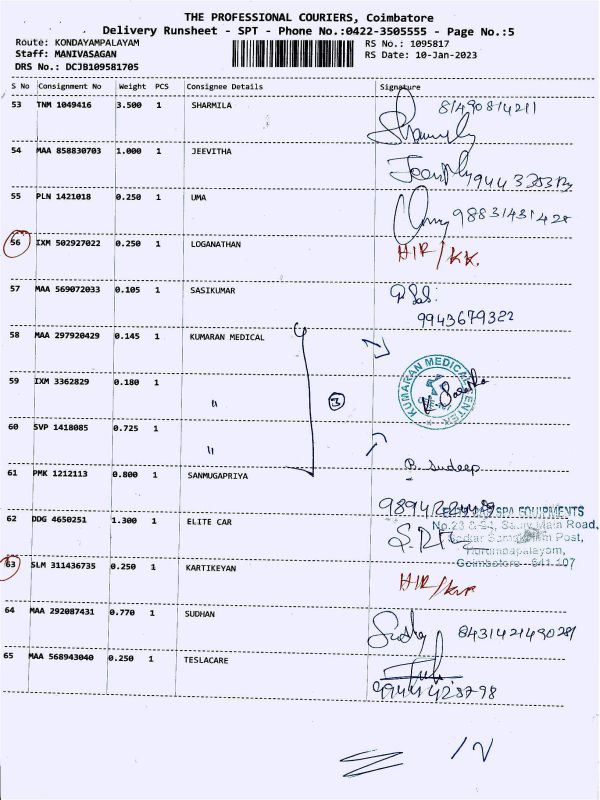 THE PROFESSIONAL COURIERS, Coimbatore
Delivery Runsheet - SPT - Phone No.:0422-3505555 - Page No.:5
Route: KONDAYAMPALAYAM RS No.: 1095817
Staff: MANIVASAGAN RS Date: 10-Jan-2023
DRS No.: DCJB109581705
S No Consignment No Weight PCS Consignee Details Signature
53 TNM 1049416 3.500 1 SHARMILA 81490814211
54 MAA 858830703 1.000 1 JEEVITHA
55 PLN 1421018 0.250 1 UMA 98831431428
56 IXM 502927022 0.250 1 LOGANATHAN HIR/KK.
57 MAA 569072033 0.105 1 SASIKUMAR
9943679322
58 MAA 297920429 0.145 1 KUMARAN MEDICAL
KUMARAN MEDICAL CENTER
59 IXM 3362829 0.180 1 " 3
60 SVP 1418085 0.725 1 "
B. Sudeep
61 PMK 1212113 0.800 1 SANMUGAPRIYA
SPA EQUIPMENTS
62 DDG 4650251 1.300 1 ELITE CAR
Main Road,
Post,
Kurumbapalayam,
Coimbatore - 641 107
63 SLM 311436735 0.250 1 KARTIKEYAN
64 MAA 292087431 0.770 1 SUDHAN
65 MAA 568943040 0.250 1 TESLACARE